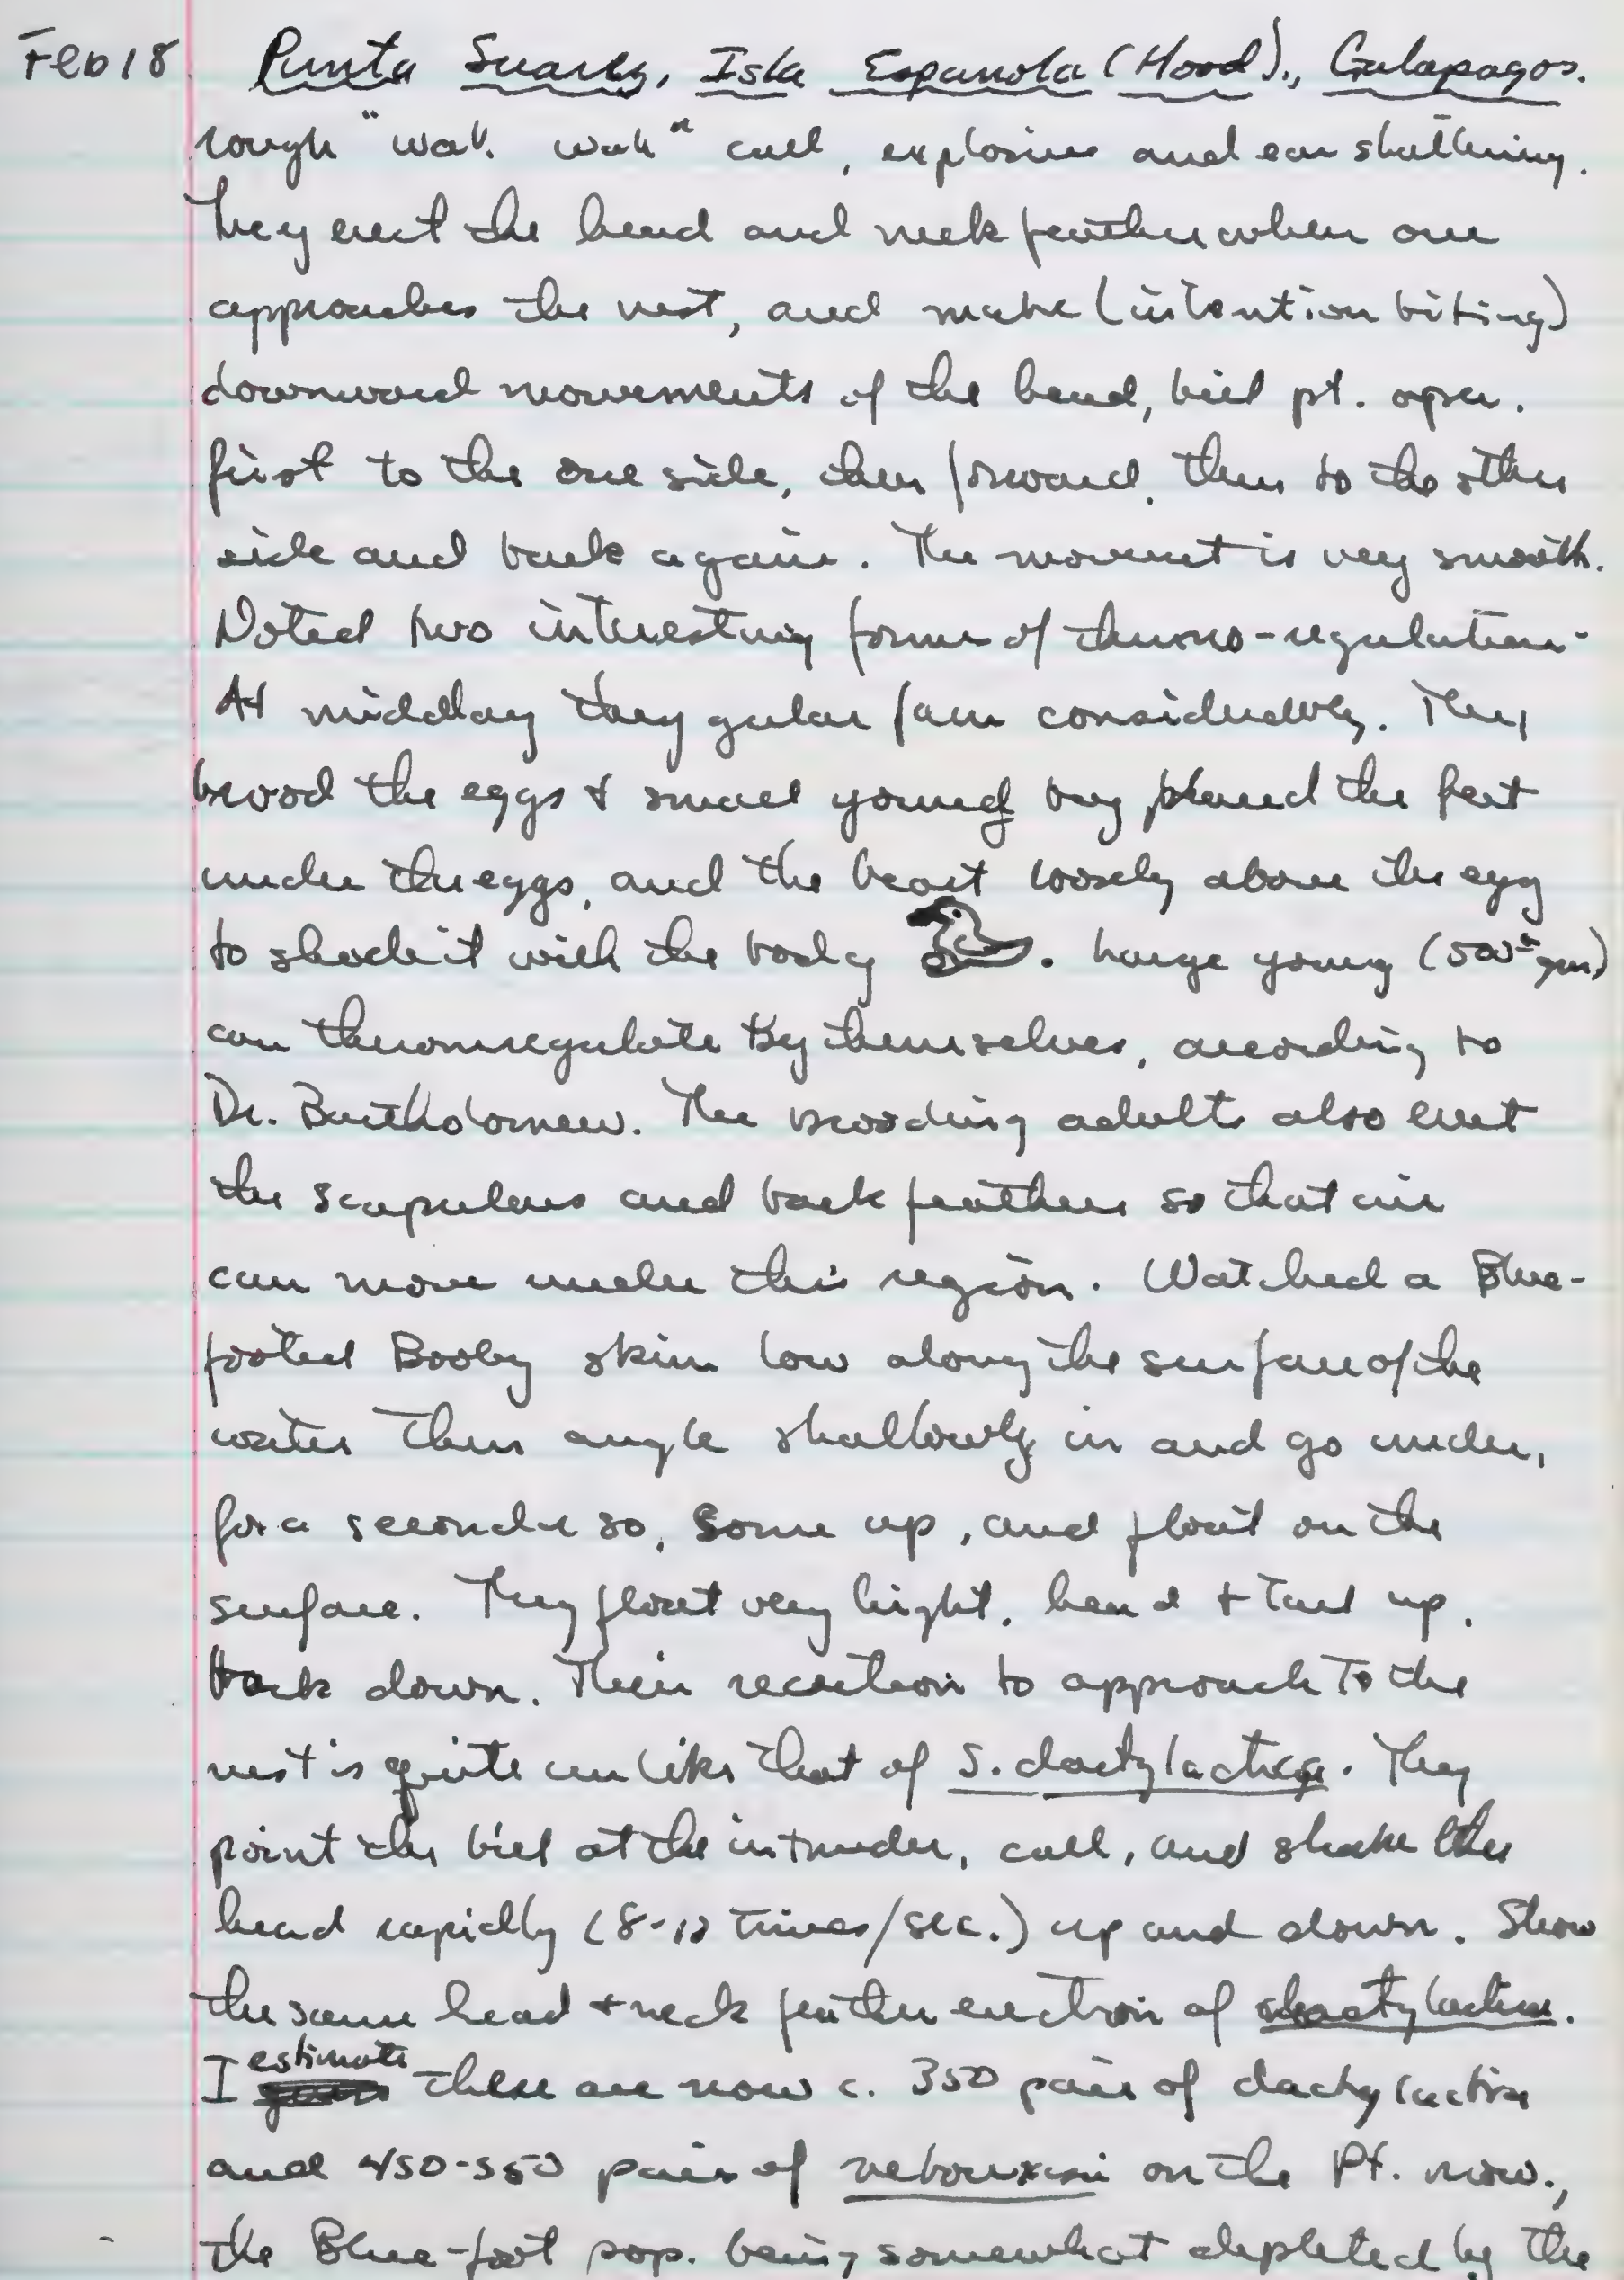 Feb 18 Punta Suarez, Isla Espanola (Hood)., Galapagos.
rough "wak. wak" call, explosive and ear shattering.
They erect the head and neck feather when one
approaches the nest, and make (intention biting)
downward movements of the head, bill pt. open.
first to the one side, then forward, then to the other
side and back again. The movement is very smooth.
Noted two interesting forms of thermo-regulation-
At midday they gular fan considerably. They
brood the eggs & small young by placed the feet
under the eggs, and the breast loosely above the egg
to shade it with the body . Large young (500± gm)
can thermoregulate by themselves, according to
Dr. Bartholomew. The brooding adults also erect
the scapulars and back feathers so that air
can move under this region. Watched a Blue-
footed Booby skim low along the surface of the
water then angle shallowly in and go under,
for a second or so, come up, and float on the
surface. They float very light, head & tail up,
back down. Their reaction to approach to the
nest is quite unlike that of S. dactylactra. They
point the bill at the intruder, call, and shake the
head rapidly (8-12 times/sec.) up and down. Show
the same head & neck feather erection of dactylactra.
I estimate there are now c. 350 pair of dactylactra
and 450-550 pairs of nebouxii on the Pt. now.,
the Blue-foot pop. being somewhat depleted by the